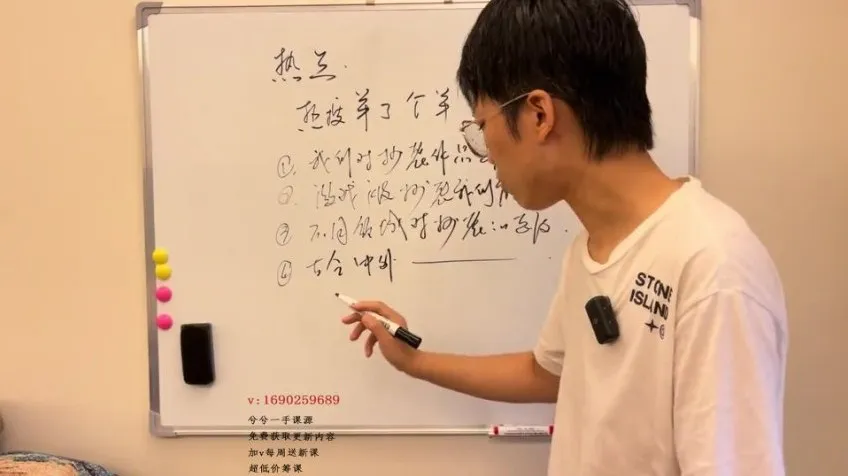 热点.
热搜羊了个羊
①. 我们对抄袭作品
②. 游戏抄袭我们
③ 不同领域对抄袭的态度.
④ 古今中外
STONE
ISLAND
v:1690259689
兮兮一手课源
免费获取更新内容
加v每周送新课
超低价筹课